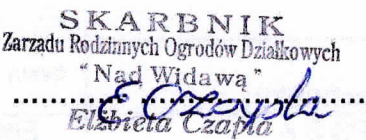 SKARBNIK
Zarządu Rodzinnych Ogrodów Działkowych
"Nad Widawą"
E Czapla
Elżbieta Czapla